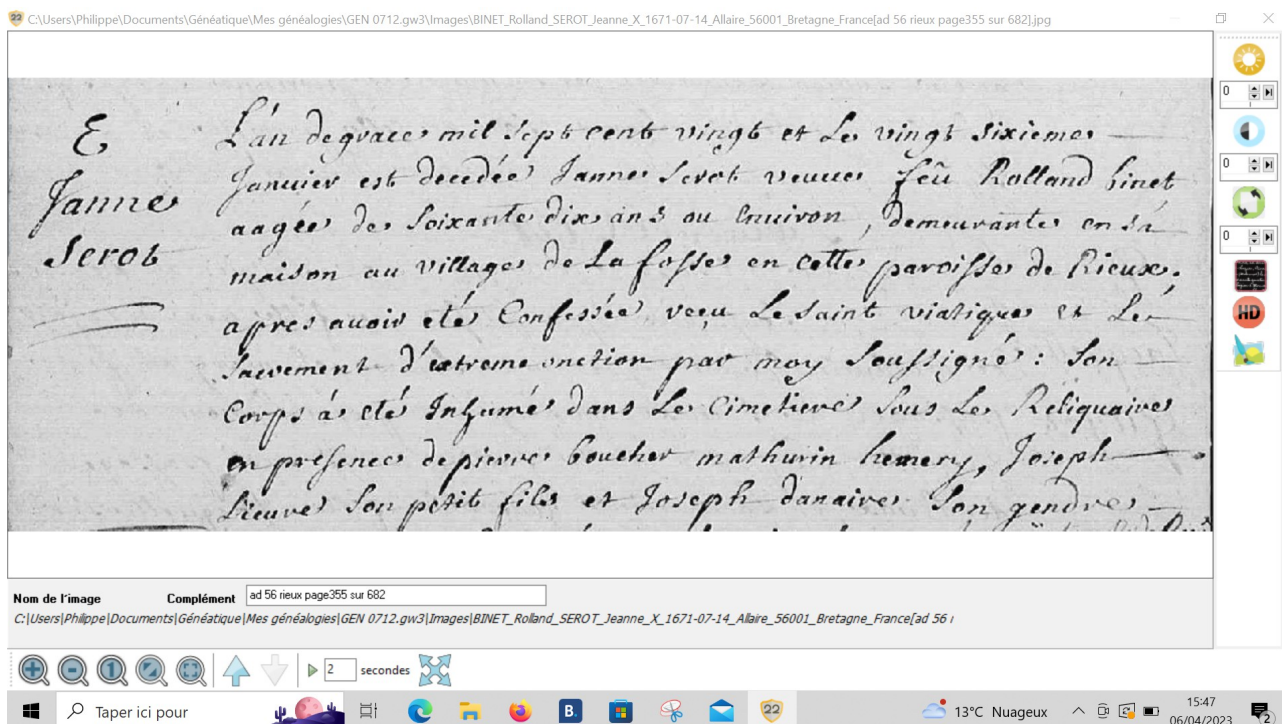 C:\Users\Philippe\Documents\Généatique\Mes généalogies\GEN 0712.gw3\Images\BINET_Rolland_SEROT_Jeanne_X_1671-07-14_Allaire_56001_Bretagne_France[ad 56 rieux page355 sur 682].jpg
E
Janne
Serot
L'an de grace mil sept cent vingt et le vingt sixieme
Januier est decedée Janne Serot veuue feü Rolland binet
aagée de soixante dix ans ou enuiron, demeurante en sa
maison au village de La fosse en cette paroisse de Rieux.
apres auoir eté Confessée, reçu Le saint viatique et Le
sacrement d'extreme onction par moy soussigné: son
Corps á eté Inhumé dans Le Cimetiere sous Le Reliquaire
en presence de pierre boucher mathurin hemery, Joseph
Lieuve son petit fils et Joseph danaire son gendre
0
0
0
HD
Nom de l'image
Complément
ad 56 rieux page355 sur 682
C:\Users\Philippe\Documents\Généatique\Mes généalogies\GEN 0712.gw3\Images\BINET_Rolland_SEROT_Jeanne_X_1671-07-14_Allaire_56001_Bretagne_France[ad 56 r
1
2 secondes
Taper ici pour
B.
22
13°C Nuageux
15:47
06/04/2023